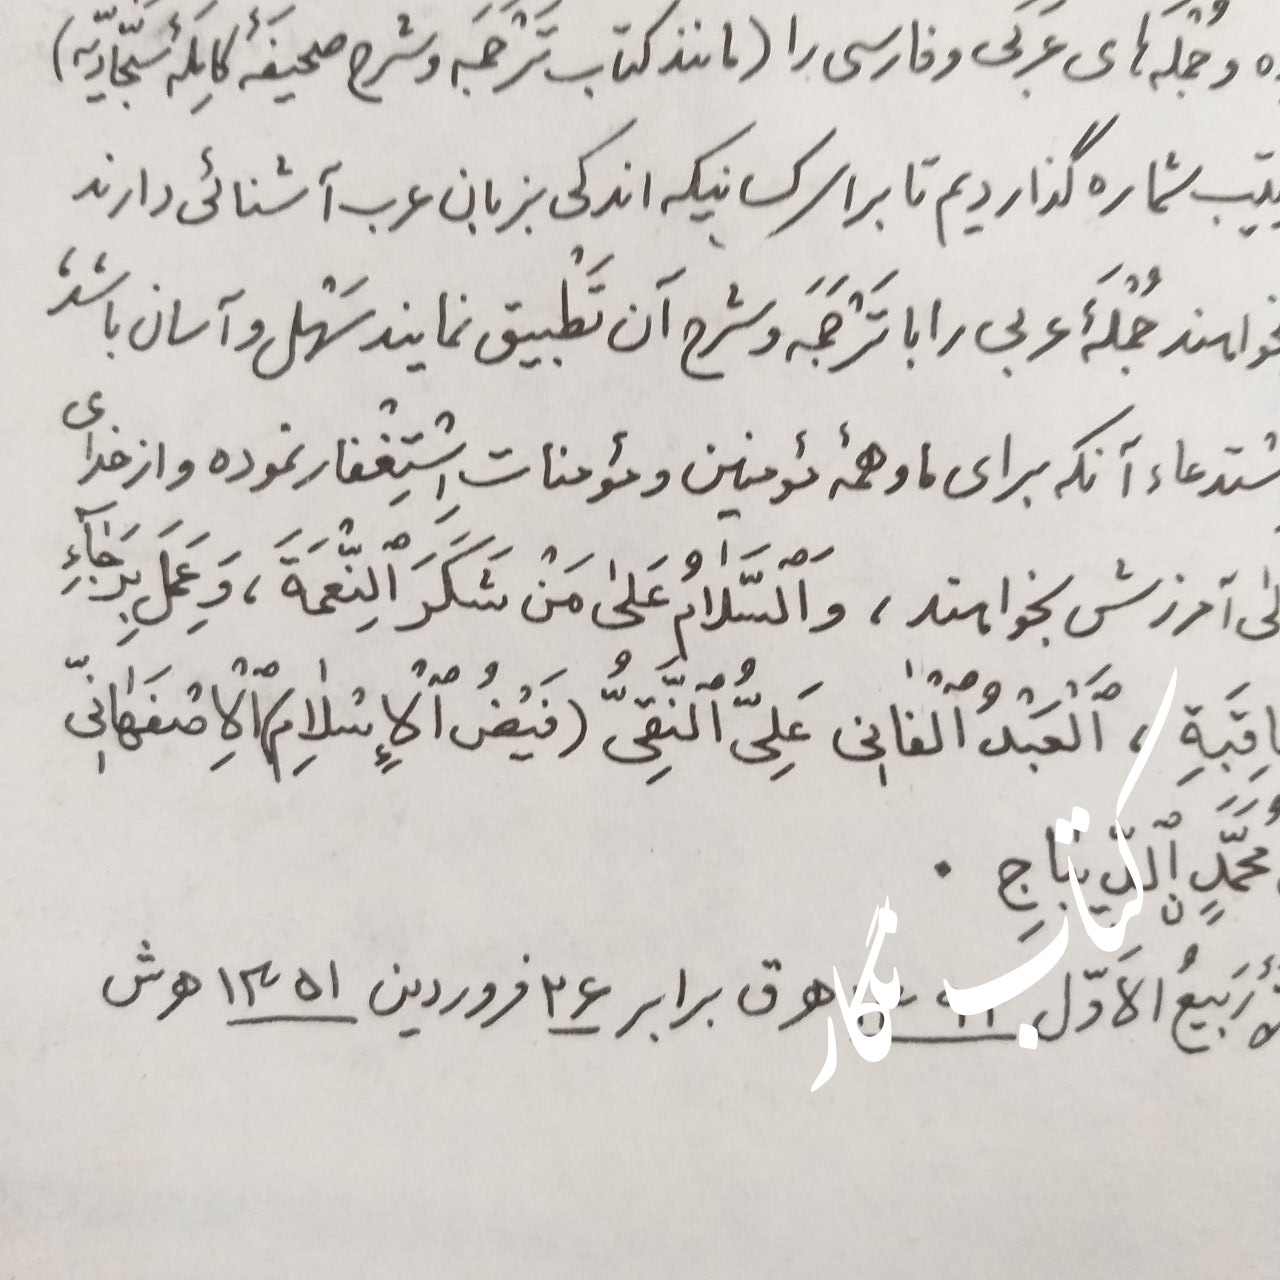 ه و جُمْلَه‌های عَرَبی و فارسی را (مانند کتاب تَرْجَمَه و شرح صحیفهٔ کامِلهٔ سَجّادیّه)
شماره گذاردیم تا برای کسانیکه اندکی بزبان عرب آشنائی دارند
بخواهند جُمْلَهٔ عربی را با تَرْجَمَه و شرح آن تَطْبیق نمایند سَهْل و آسان باشد،
آنکه برای ما و همهٔ مُؤمنین و مُؤمنات اِسْتِغْفار نموده و از خدای
آمرزش بخواهند، وَٱلسَّلامُ عَلیٰ مَنْ شَکَرَ ٱلنِّعْمَةَ، وَ عَمِلَ بِرَجٰآءِ
، ٱلْعَبْدُ ٱلْفٰانِی عَلِیُّ ٱلنَّقِیُّ (فَیْضُ ٱلْإِسْلٰامِ) ٱلْاِصْفَهٰانِیّ
مُحَمَّدٍ ٱلدّیبٰاجِ .
رَبیعُ الاَوّل ه‍ ق برابر ۲۶ فروردین ۱۳۵۱ ه‍ ش
کتاب نگار